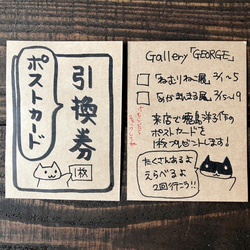 ポストカード
引換券
1枚
Gallery「GEORGE」
「ねむりねこ展」3/1~5
3/15~19
来店で
作の
ポストカードを
1枚プレゼントします!
たくさんあるよ
えらべるよ
2回行こう!!